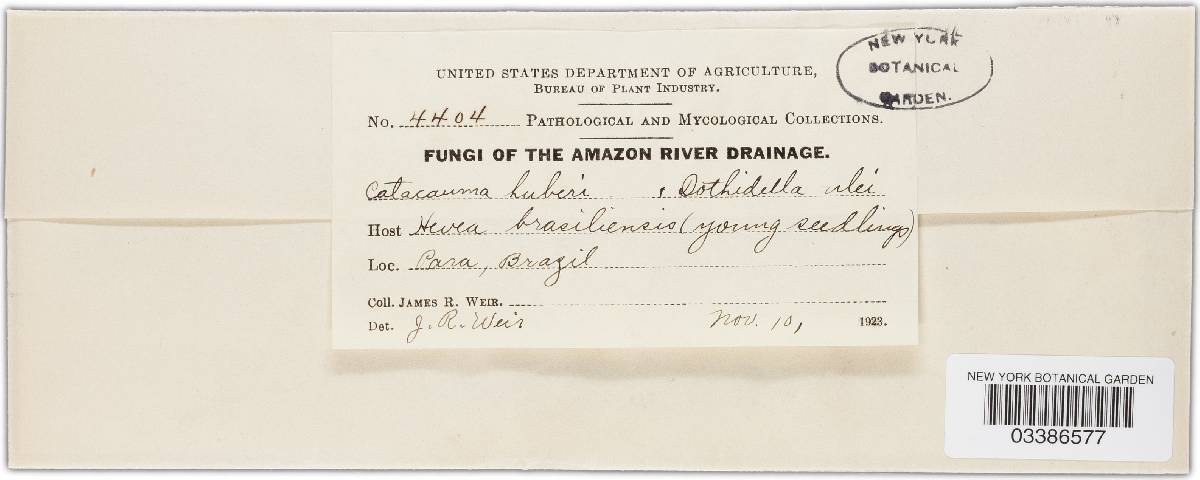 NEW YORK
BOTANICAL
GARDEN.
UNITED STATES DEPARTMENT OF AGRICULTURE,
BUREAU OF PLANT INDUSTRY.
No. 4404 PATHOLOGICAL AND MYCOLOGICAL COLLECTIONS.
FUNGI OF THE AMAZON RIVER DRAINAGE.
Catacauma huberi , Dothidella ulei
Host Hevea brasiliensis (young seedlings)
Loc. Para, Brazil
Coll. JAMES R. WEIR.
Det. J. R. Weir Nov. 10, 1923.
NEW YORK BOTANICAL GARDEN
03386577